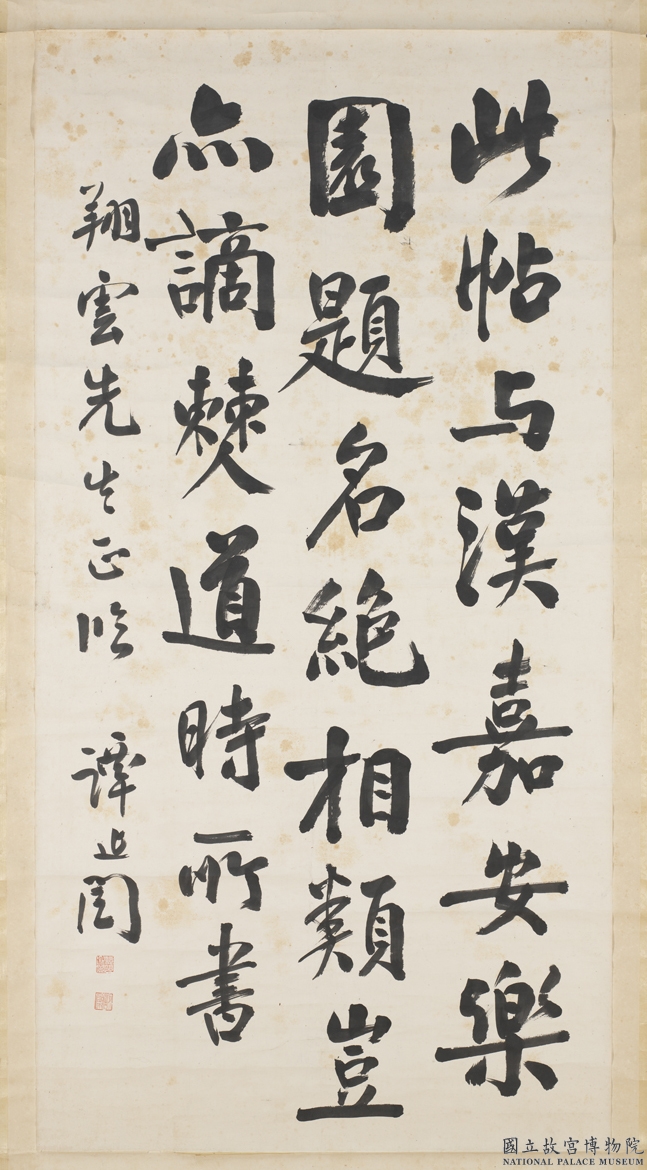 此帖与漢嘉安樂
園題名絶相類豈
亦謫僰道時所書
翔雲先生正臨 譚延闓
國立故宮博物院
NATIONAL PALACE MUSEUM